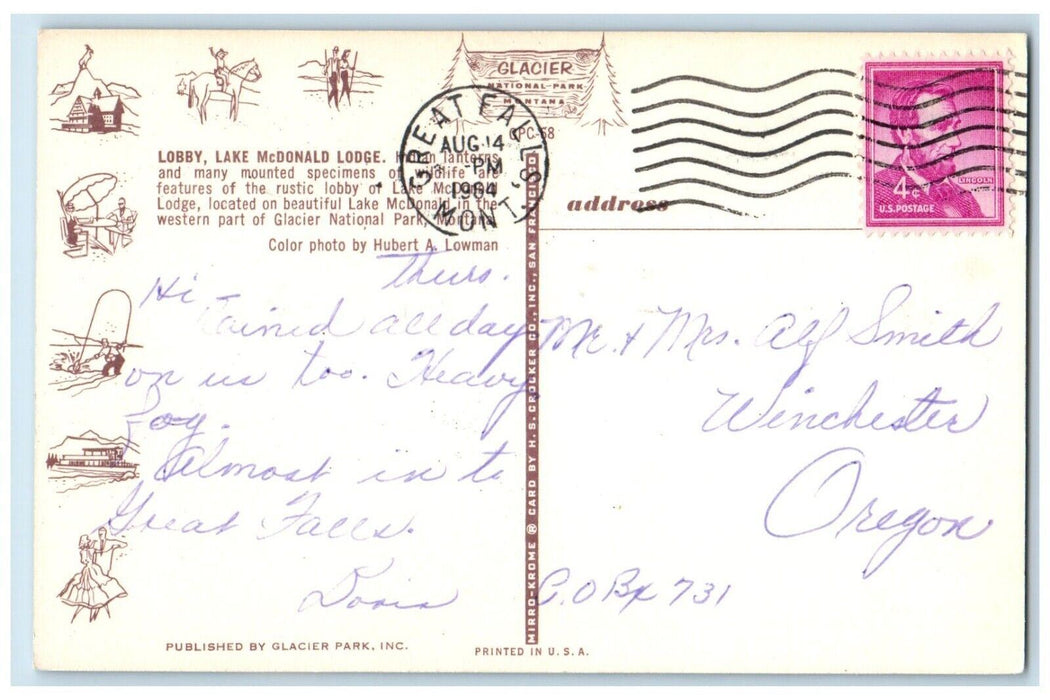 GLACIER
NATIONAL-PARK
MONTANA
GREAT FALLS
AUG 14
PM
1964
MONT.
4¢
LINCOLN
U.S. POSTAGE
LOBBY, LAKE McDONALD LODGE. lanterns
and many mounted specimens of are
features of the rustic lobby of Lake McDonald
Lodge, located on beautiful Lake McDonald in the
western part of Glacier National Park, Montana.
Color photo by Hubert A. Lowman
address
Thurs.
Hi
Rained all day
on us too. Heavy
fog.
Almost in to
Great Falls.
Doris
Mr. & Mrs. Alf Smith
Winchester
Oregon
P.O Bx 731
MIRRO-KROME ® CARD BY H.S. CROCKER CO., INC., SAN FRANCISCO
PUBLISHED BY GLACIER PARK, INC.
PRINTED IN U. S. A.